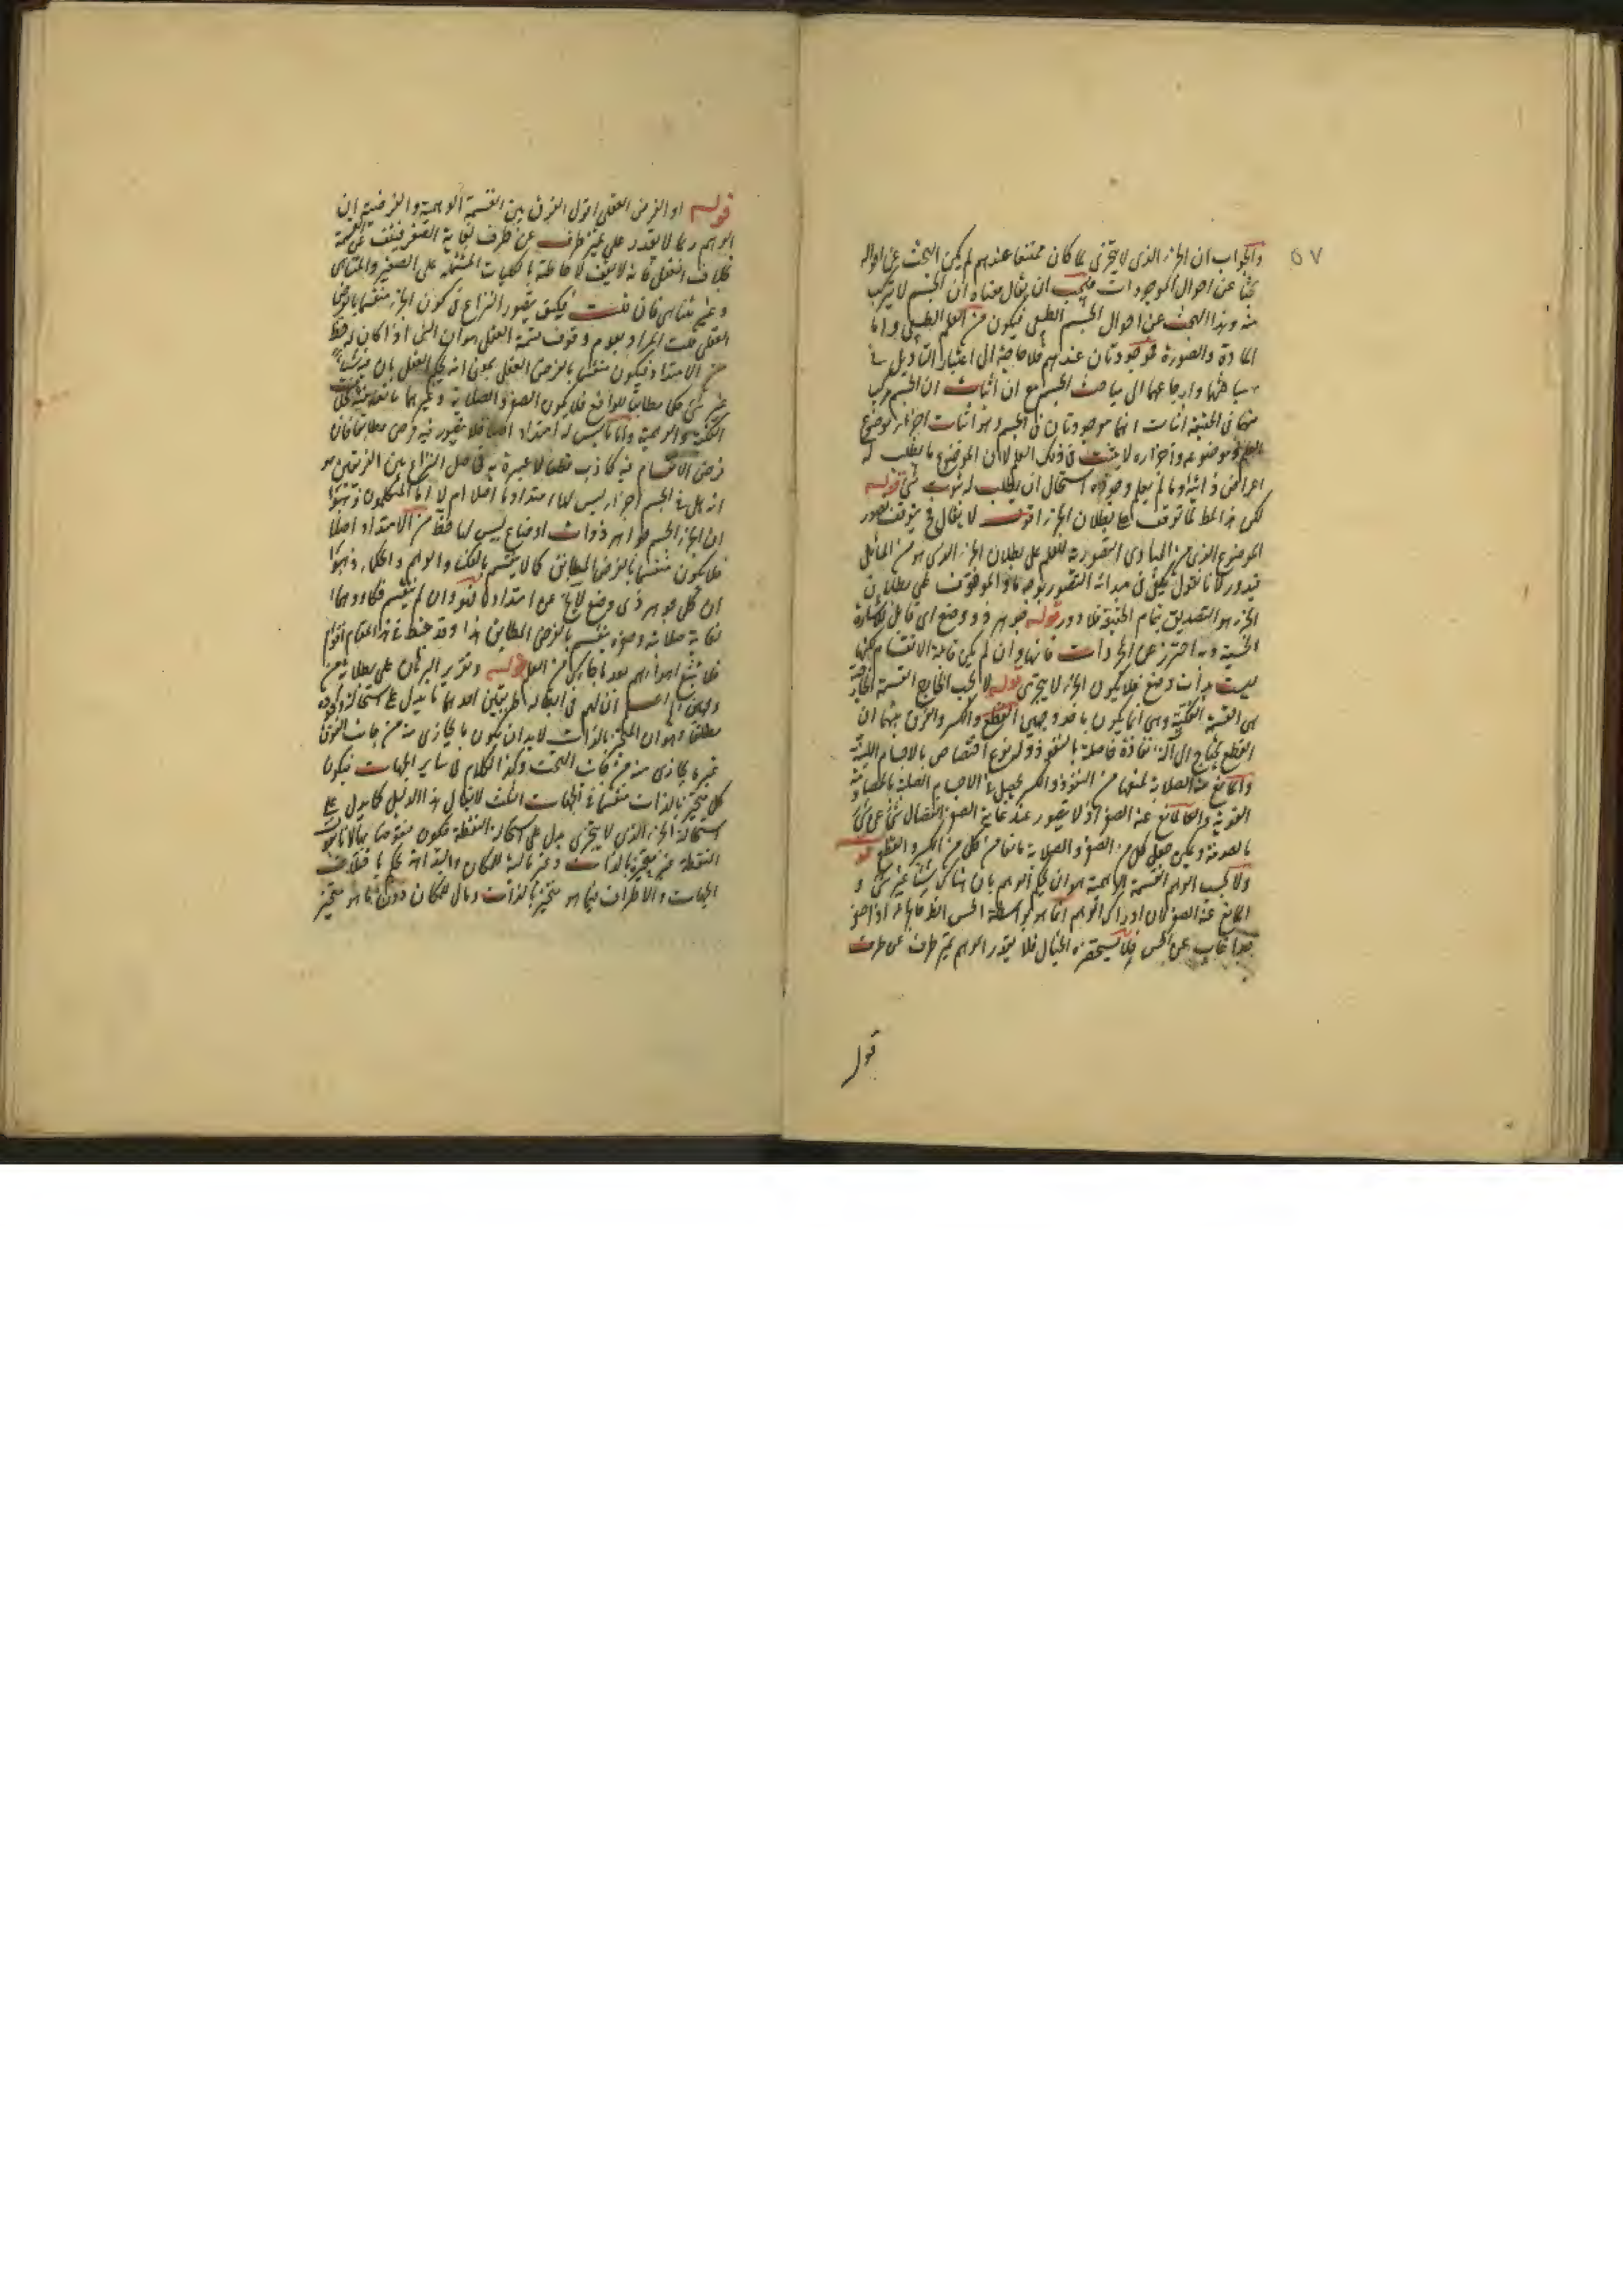 ٥٧
والجواب ان الجزء الذى لا يتجزى لما كان ممتنعا عندهم لم يكن البحث عن احواله
بحثا عن احوال الموجودات فيجب ان يقال معناه ان الجسم لا يتركب
منه وهذا البحث عن احوال الجسم الطبيعى فيكون من العلم الطبيعى واما
المادة والصورة فموجودتان عندهم فلا حاجة الى اعتبار التاويل فى
مباحثها وارجاعها الى مباحث الجسم مع ان اثبات ان الجسم مركب
منهما فى الحقيقة اثبات انهما موجودتان فى الجسم وهو اثبات اجزاء موضوع
العلم وموضوعه واجزاءه لا يثبت فى ذلك العلم لان الموضوع ما يطلب له
اعراض ذاتية وما لم يعلم وجوده استحال ان يطلب له ثبوت شئ قوله
لكن هذا المط لما توقف على بطلان الجزء اقول لا يقال فح يتوقف تصور
الموضوع الذى من المبادى التصورية للعلم على بطلان الجزء الذى هو من المسائل
فيدور لانا نقول يكفى فى مبدائه التصور بوجه ما والموقوف على بطلان
الجزء هو التصديق بتمام الحقيقة فلا دور قوله جوهر ذو وضع اى قابل للاشارة
الحسية وبه احترز عن المجردات فانها وان لم يكن قابلة الانقسام لكنها
ليست بذات وضع فلا يكون الجزء لا يتجزى قوله لا بحسب الخارج القسمة الخارجية
هى القسمة الفكية وهى انما يكون باحد وجهين القطع والكسر والفرق بينهما ان
القطع يحتاج الى آلة نفاذة فاصلة بالنفوذ وله نوع اختصاص بالاجسام اللينة
والمانع عنه الصلابة لمنعها من النفوذ والكسر يحصل فى الاجسام الصلبة بالمصادمة
القوية والمانع عنه الصغر اذ لا يتصور عند غاية الصغر انفصال شئ عن شئ
بالصدمة ويمكن جعل كل من الصغر والصلابة مانعا من كل من الكسر والقطع قو
ولا بحسب الوهم القسمة الوهمية هو ان يحكم الوهم بان هناك شيئا غير شئ و
المانع عنه الصغر لان ادراك الوهم انما هو بواسطة الحس الظ فالجزء اذا صغر
جدا غاب عن الحس فلا يستحضره الخيال فلا يقدر الوهم تميز طرف عن طرف
قول
قوله او الفرض العقلى اقول الفرق بين القسمة الوهمية والفرضية ان
الوهم ربما لا يقدر على تميز طرف عن طرف لغاية الصغر فيقف عن القسمة
بخلاف العقل فانه لا يقف لاحاطته بالكليات المشتملة على الصغير والمتناهى
وغير متناهى فان قلت فكيف يتصور النزاع فى كون الجزء منقسما بالفرض
العقلى قلت المراد بعدم وقوف قسمة العقل هو ان الشئ اذا كان له حظ
من الامتداد فيكون منقسما بالفرض العقلى بمعنى انه يحكم العقل بان فيه شيئا
غير شئ حكما مطابقا للواقع فلا يكون الصغر والصلابة وغيرهما مانعا بخلاف
الفكية والوهمية واما ما ليس له امتداد اصلا فلا يتصور فيه فرض مطابق فان
فرض الانقسام فيه كاذب قطعا لا عبرة به فاصل النزاع بين الفريقين هو
انه هل فى الجسم اجزاء ليس لها امتداد ما اصلا ام لا اما المتكلمون ذهبوا
ان اجزاء الجسم جواهر ذوات اوضاع ليس لها حظ من الامتداد اصلا
فلا يكون منقسما بالفرض المطابق كما لا ينقسم بالفك والوهم والحكماء ذهبوا
ان كل جوهر ذى وضع لا يخ عن امتداد ما فهو وان لم ينقسم فكا ووهما
لغاية صلابته وصغره ينقسم بالفرض المطابق هذا وقد خبط فى هذا المقام اقوام
فلا تتبع اهواءهم بعد ما جاءك من العلم قوله وتقرير البرهان على بطلانه من
وجهين اعلم ان لهم فى ابطاله طريقين احدهما ما يدل على استحالة وجوده
مطلقا وهو ان المتحيز بالذات لا بد ان يكون ما يحاذى منه من جانب الفوق
غير ما يحاذى منه من جانب التحت وكذا الكلام فى ساير الجهات فيكون
كل متحيز بالذات منقسما فى الجهات الثلث لا يقال هذا الدليل كما يدل على
استحالة الجزء الذى لا يتجزى يدل على استحالة النقطة فيكون منقوضا بها لانا نقول
النقطة غير متحيزة بالذات وغير مالئة للمكان والبداهة تحكم باختلاف
الجهات والاطراف فيما هو متحيز بالذات ومالئ للمكان دون ما هو متحيز